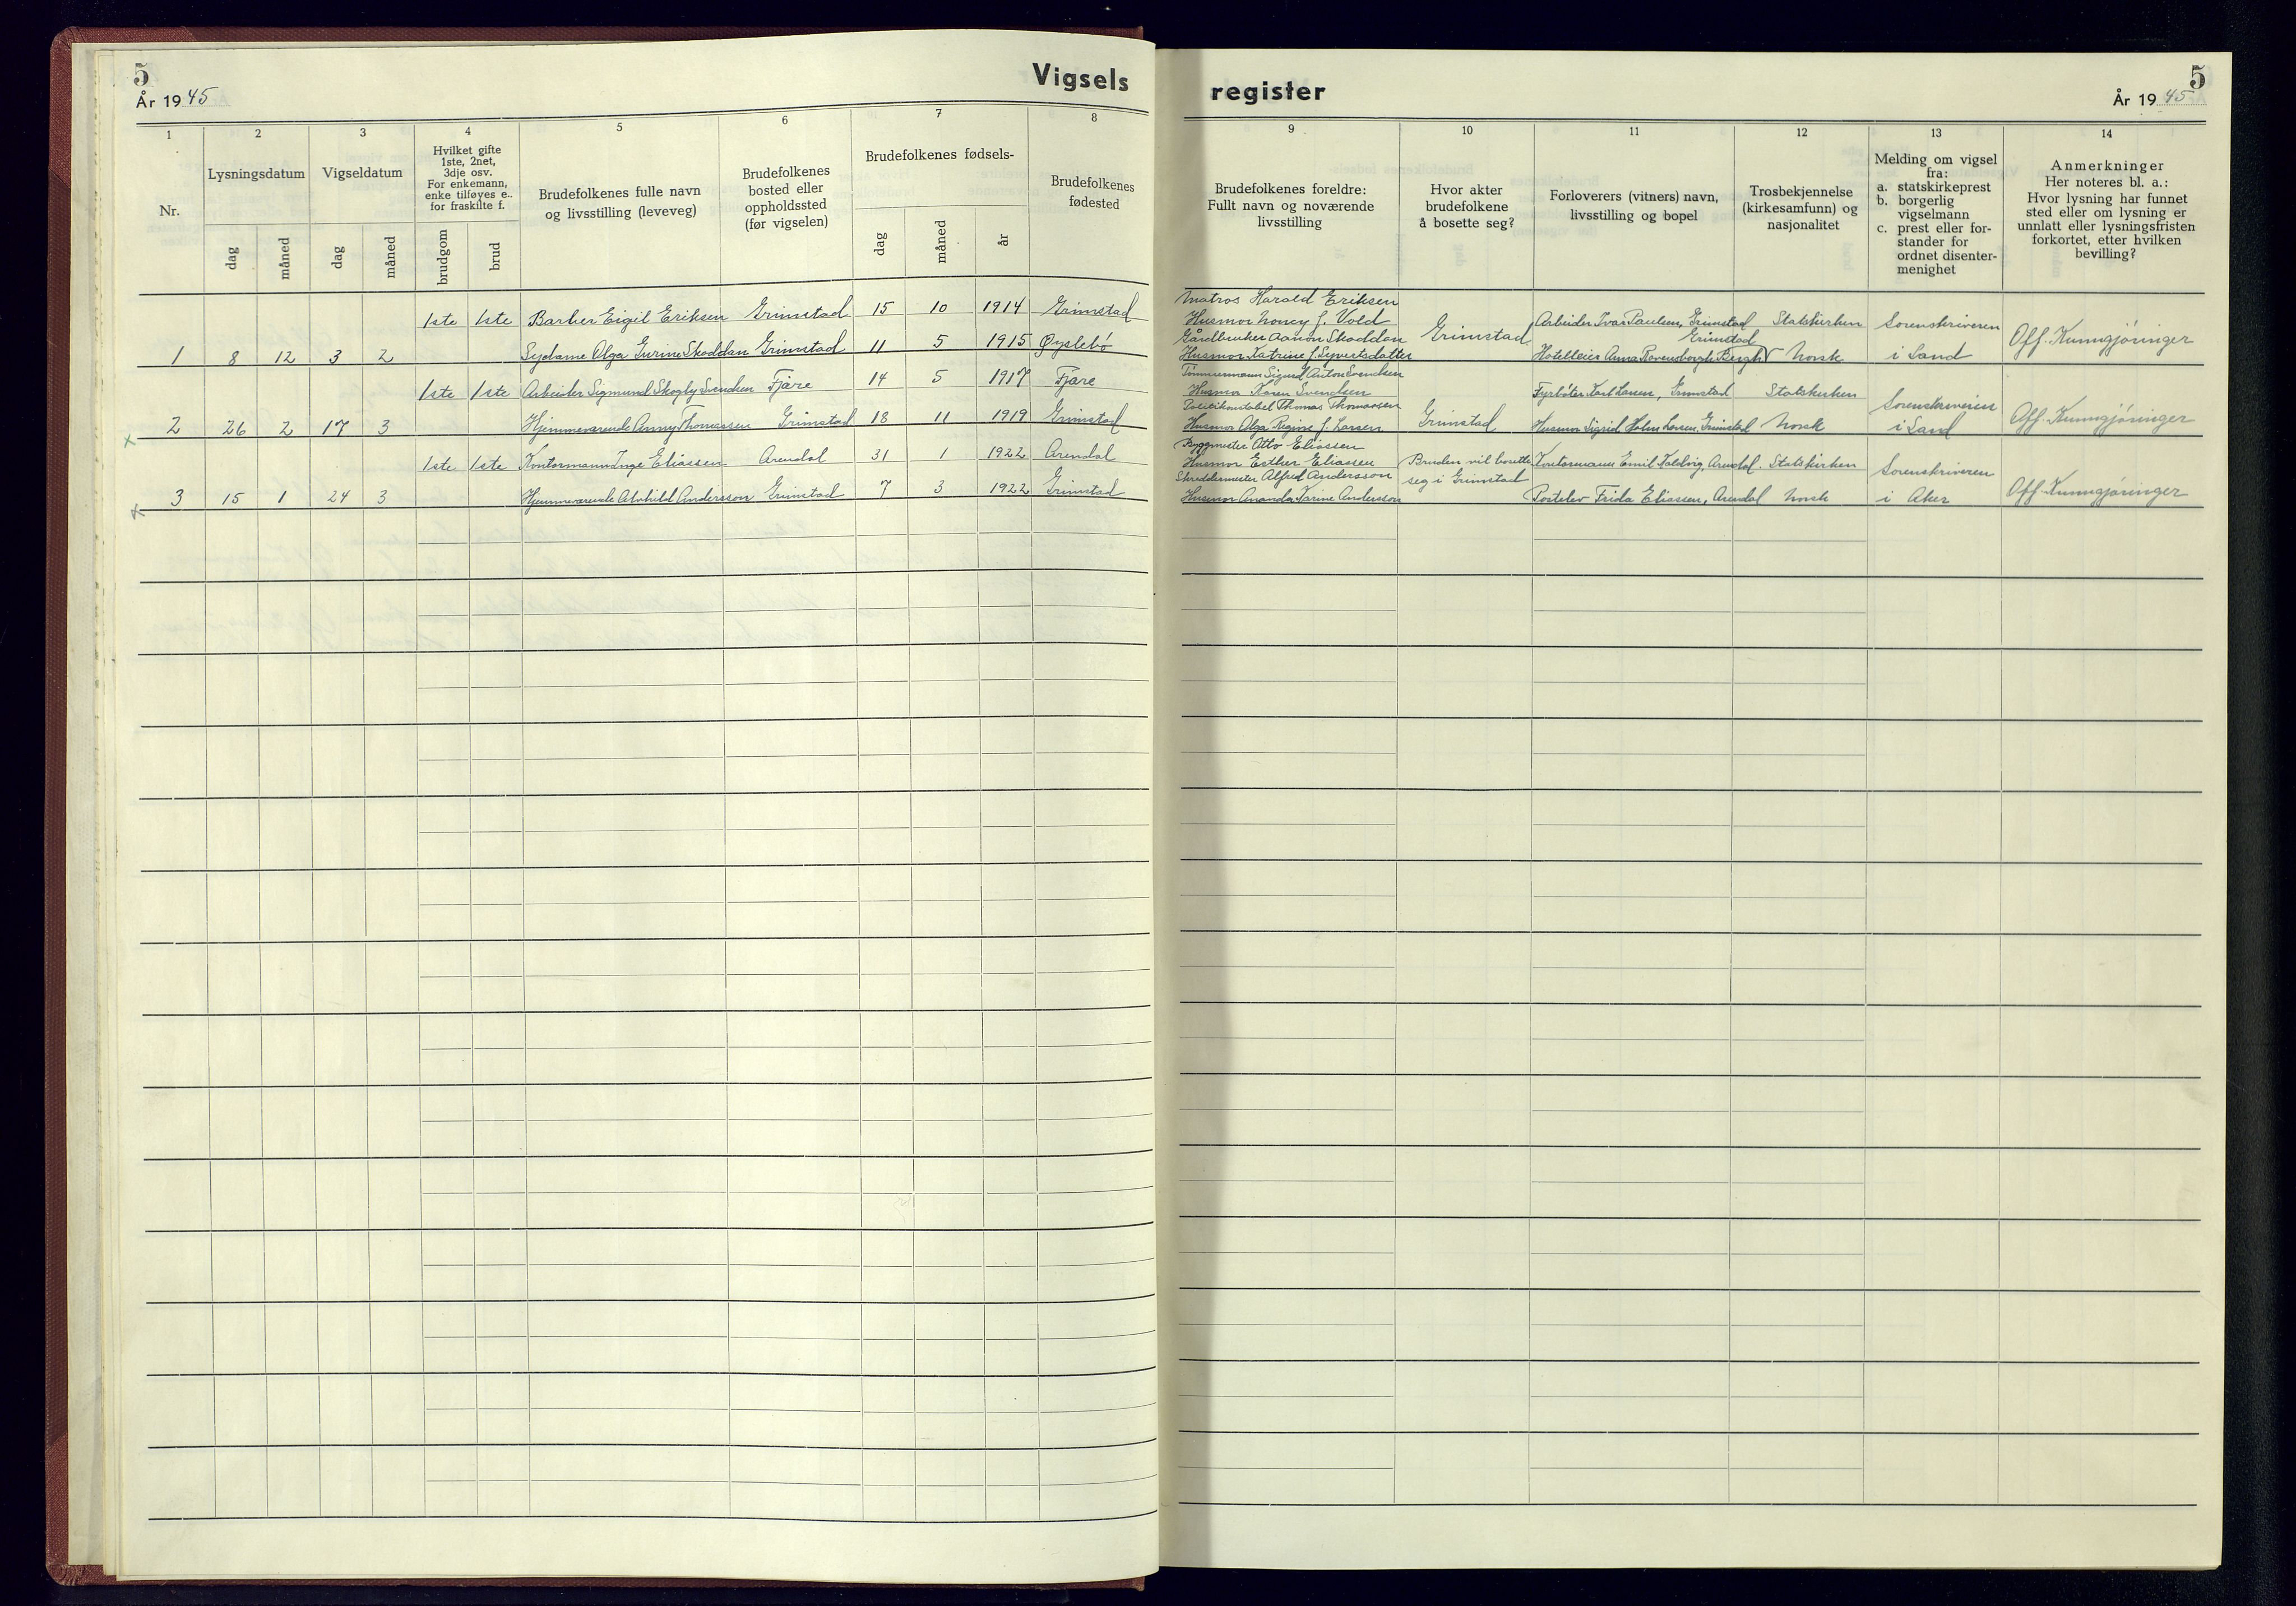 5
År 1945
Vigsels
register
5
År 1945
1
2
3
4
5
6
7
8
9
10
11
12
13
14
Nr.
Lysningsdatum
dag
måned
Vigseldatum
dag
måned
Hvilket gifte
1ste, 2net,
3dje osv.
For enkemann,
enke tilføyes e..
for fraskilte f.
brudgom
brud
Brudefolkenes fulle navn
og livsstilling (leveveg)
Brudefolkenes
bosted eller
oppholdssted
(før vigselen)
Brudefolkenes fødsels-
dag
måned
år
Brudefolkenes
fødested
Brudefolkenes foreldre:
Fullt navn og noværende
livsstilling
Hvor akter
brudefolkene
å bosette seg?
Forloverers (vitners) navn,
livsstilling og bopel
Trosbekjennelse
(kirkesamfunn) og
nasjonalitet
Melding om vigsel
fra:
a. statskirkeprest
b. borgerlig
vigselmann
c. prest eller for-
stander for
ordnet disenter-
menighet
Anmerkninger
Her noteres bl. a.:
Hvor lysning har funnet
sted eller om lysning er
unnlatt eller lysningsfristen
forkortet, etter hvilken
bevilling?
1ste 1ste Barber Eigil Eriksen Grimstad 15 10 1914 Grimstad
1 8 12 3 2 Sydame Olga Gurine Skoddan Grimstad 11 5 1915 Øyslebø
Matros Harald Eriksen
Husmor Noncy f. Vold
Gårdbruker Aanon Skoddan
Husmor Katrine f. Syvertsdatter
Grimstad
Arbeider Ivar Paulsen, Grimstad
Grimstad
Hotelleier Anna Ravensborgh Bergh
Statskirken
Norsk
Sorenskriveren
i Sand
Off. Kunngjøringer
1ste 1ste Arbeider Sigmund Skogby Svendsen Fjære 14 5 1917 Fjære
x 2 26 2 17 3 Hjemmeværende Anny Thomassen Grimstad 18 11 1919 Grimstad
Tömmermann Sigurd Anton Svendsen
Husmor Karen Svendsen
Politikonstabel Thomas Thomassen
Husmor Olga Regine f. Larsen
Grimstad
Fyrbøter Karl Larsen, Grimstad
Husmor Sigrid Holm Larsen, Grimstad
Statskirken
Norsk
Sorenskriveren
i Sand
Off. Kunngjøringer
1ste 1ste Kontormann Inge Eliassen Arendal 31 1 1922 Arendal
x 3 15 1 24 3 Hjemmeværende Alvhild Andersson Grimstad 7 3 1922 Grimstad
Byggmester Otto Eliassen
Husmor Esther Eliassen
Skreddermester Alfred Andersson
Husmor Ananda Karine Andersson
Bruden vil bosette
seg i Grimstad
Kontormann Emil Kaldvig, Arendal.
Postelev Frida Eliassen, Arendal
Statskirken
Norsk
Sorenskriveren
i Aker
Off. Kunngjøringer